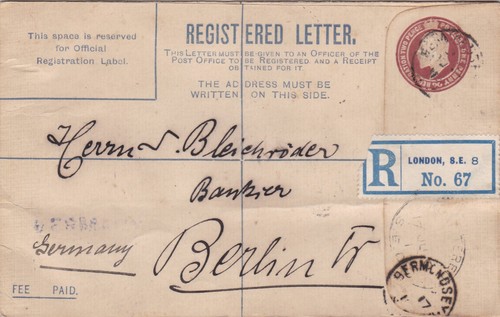 This space is reserved
for Official
Registration Label.
REGISTERED LETTER.
THIS LETTER MUST BE GIVEN TO AN OFFICER OF THE
POST OFFICE TO BE REGISTERED AND A RECEIPT
OBTAINED FOR IT.
THE ADDRESS MUST BE
WRITTEN ON THIS SIDE.
Herrn S. Bleichröder
Bankier
R
LONDON, S.E. 8
No. 67
Germany
Berlin W
FEE PAID.
BERMONDSEY